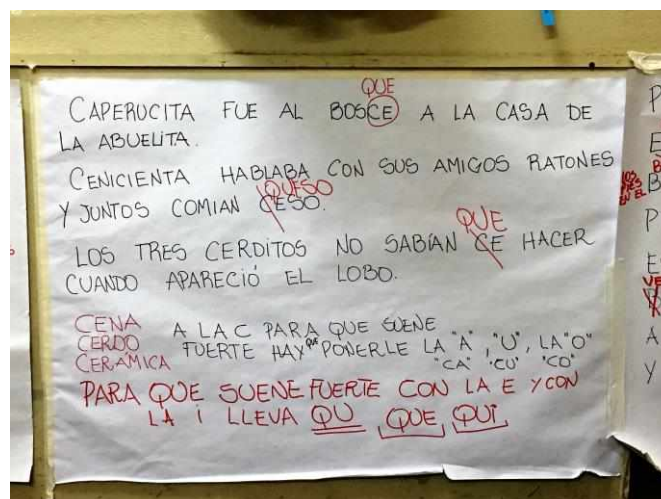 QUE
CAPERUCITA FUE AL BOSCE A LA CASA DE
LA ABUELITA.
CENICIENTA HABLABA CON SUS AMIGOS RATONES
QUESO
Y JUNTOS COMIAN CESO.
QUE
LOS TRES CERDITOS NO SABÍAN CE HACER
CUANDO APARECIÓ EL LOBO.
CENA
CERDO
CERÁMICA
A LA C PARA QUE SUENE
FUERTE HAY QUE PONERLE LA "A", "U", LA "O"
"CA" "CU" "CO"
PARA QUE SUENE FUERTE CON LA E Y CON
LA i LLEVA QU QUE QUi
P
E
B
P
E
VE
A
Y